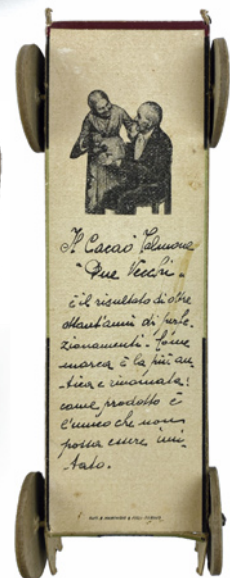 Il Cacao Talmone
"Due Vecchi"
è il risultato di oltre
ottant'anni di perfe-
zionamenti. Come
marca è la più an-
tica e rinomata:
come prodotto è
l'unico che non
possa essere imi-
tato.